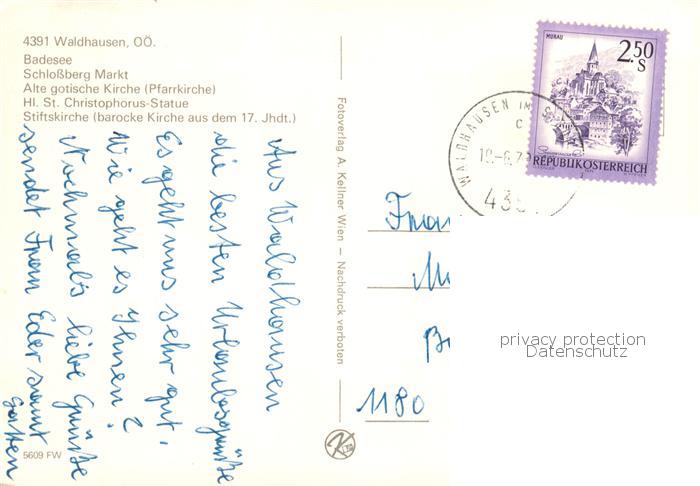 4391 Waldhausen, OÖ.
Badesee
Schloßberg Markt
Alte gotische Kirche (Pfarrkirche)
Hl. St. Christophorus-Statue
Stiftskirche (barocke Kirche aus dem 17. Jhdt.)
Aus Waldhausen
die besten Urlaubsgrüße
Es geht uns sehr gut,
Wie geht es Ihnen?
Nochmals liebe Grüße
sendet Frau Eder samt
Gatten
5609 FW
Fotoverlag A. Kellner Wien – Nachdruck verboten
MURAU
2.50
S
REPUBLIK ÖSTERREICH
WALDHAUSEN IM
Frau
1180
privacy protection
Datenschutz